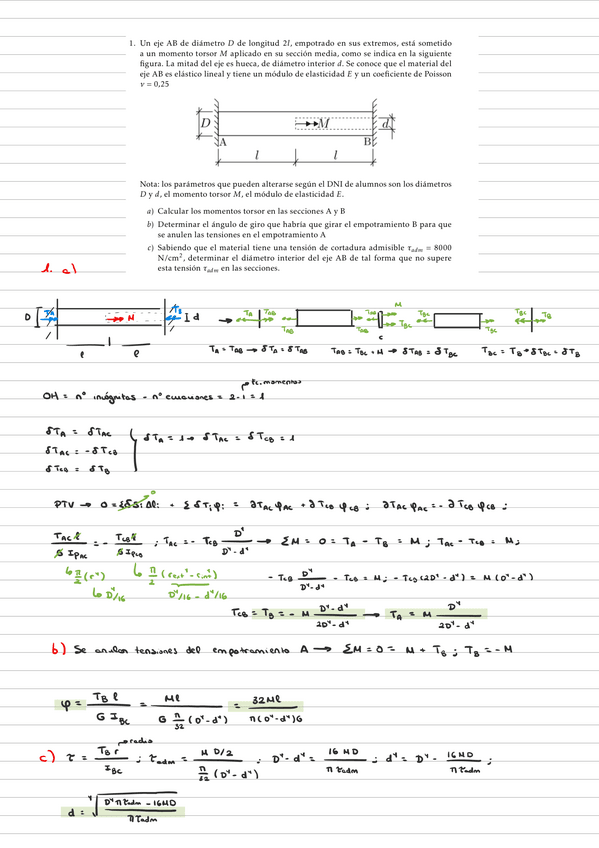 1. Un eje AB de diámetro D de longitud 2l, empotrado en sus extremos, está sometido
a un momento torsor M aplicado en su sección media, como se indica en la siguiente
figura. La mitad del eje es hueca, de diámetro interior d. Se conoce que el material del
eje AB es elástico lineal y tiene un módulo de elasticidad E y un coeficiente de Poisson
ν = 0,25
D M d
A B
l l
Nota: los parámetros que pueden alterarse según el DNI de alumnos son los diámetros
D y d, el momento torsor M, el módulo de elasticidad E.
a) Calcular los momentos torsor en las secciones A y B
b) Determinar el ángulo de giro que habría que girar el empotramiento B para que
se anulen las tensiones en el empotramiento A
c) Sabiendo que el material tiene una tensión de cortadura admisible τadm = 8000
N/cm², determinar el diámetro interior del eje AB de tal forma que no supere
esta tensión τadm en las secciones.
1. a)
D TA M TB d TA TAB TAB TAB M TBC TBC TBC TBC TB
C
l l
TA = TAB → δTA = δTAB TAB = TBC + M → δTAB = δTBC TBC = TB → δTBC = δTB
Ec. momentos
OH = nº incógnitas - nº ecuaciones = 2-1 = 1
δTA = δTAC
δTAC = -δTCB
δTCB = δTB
δTA = 1 → δTAC = δTCB = 1
PTV → 0 = ΣδSi Δli + Σ δTi φi = ∂TAC φAC + ∂TCB φCB ; ∂TAC φAC = -∂TCB φCB ;
TAC l / G IPAC = - TCB l / G IPCB ; TAC = - TCB D⁴ / D⁴-d⁴ → ΣM = 0 = TA - TB = M ; TAC - TCB = M ;
π/2 (r⁴) π/2 (rext⁴ - rint⁴)
D⁴/16 D⁴/16 - d⁴/16
- TCB D⁴ / D⁴-d⁴ - TCB = M ; -TCB (2D⁴ - d⁴) = M (D⁴-d⁴)
TCB = TB = - M D⁴-d⁴ / 2D⁴-d⁴ → TA = M D⁴ / 2D⁴-d⁴
b) Se anulan tensiones del empotramiento A → ΣM = 0 = M + TB ; TB = -M
φ = TB l / G IBC = Ml / G π/32 (D⁴-d⁴) = 32Ml / π(D⁴-d⁴)G
radio
c) τ = TB r / IBC ; τadm = M D/2 / π/32 (D⁴-d⁴) ; D⁴-d⁴ = 16 MD / π τadm ; d⁴ = D⁴ - 16MD / π τadm ;
d = ⁴√ D⁴ π τadm - 16MD / π τadm